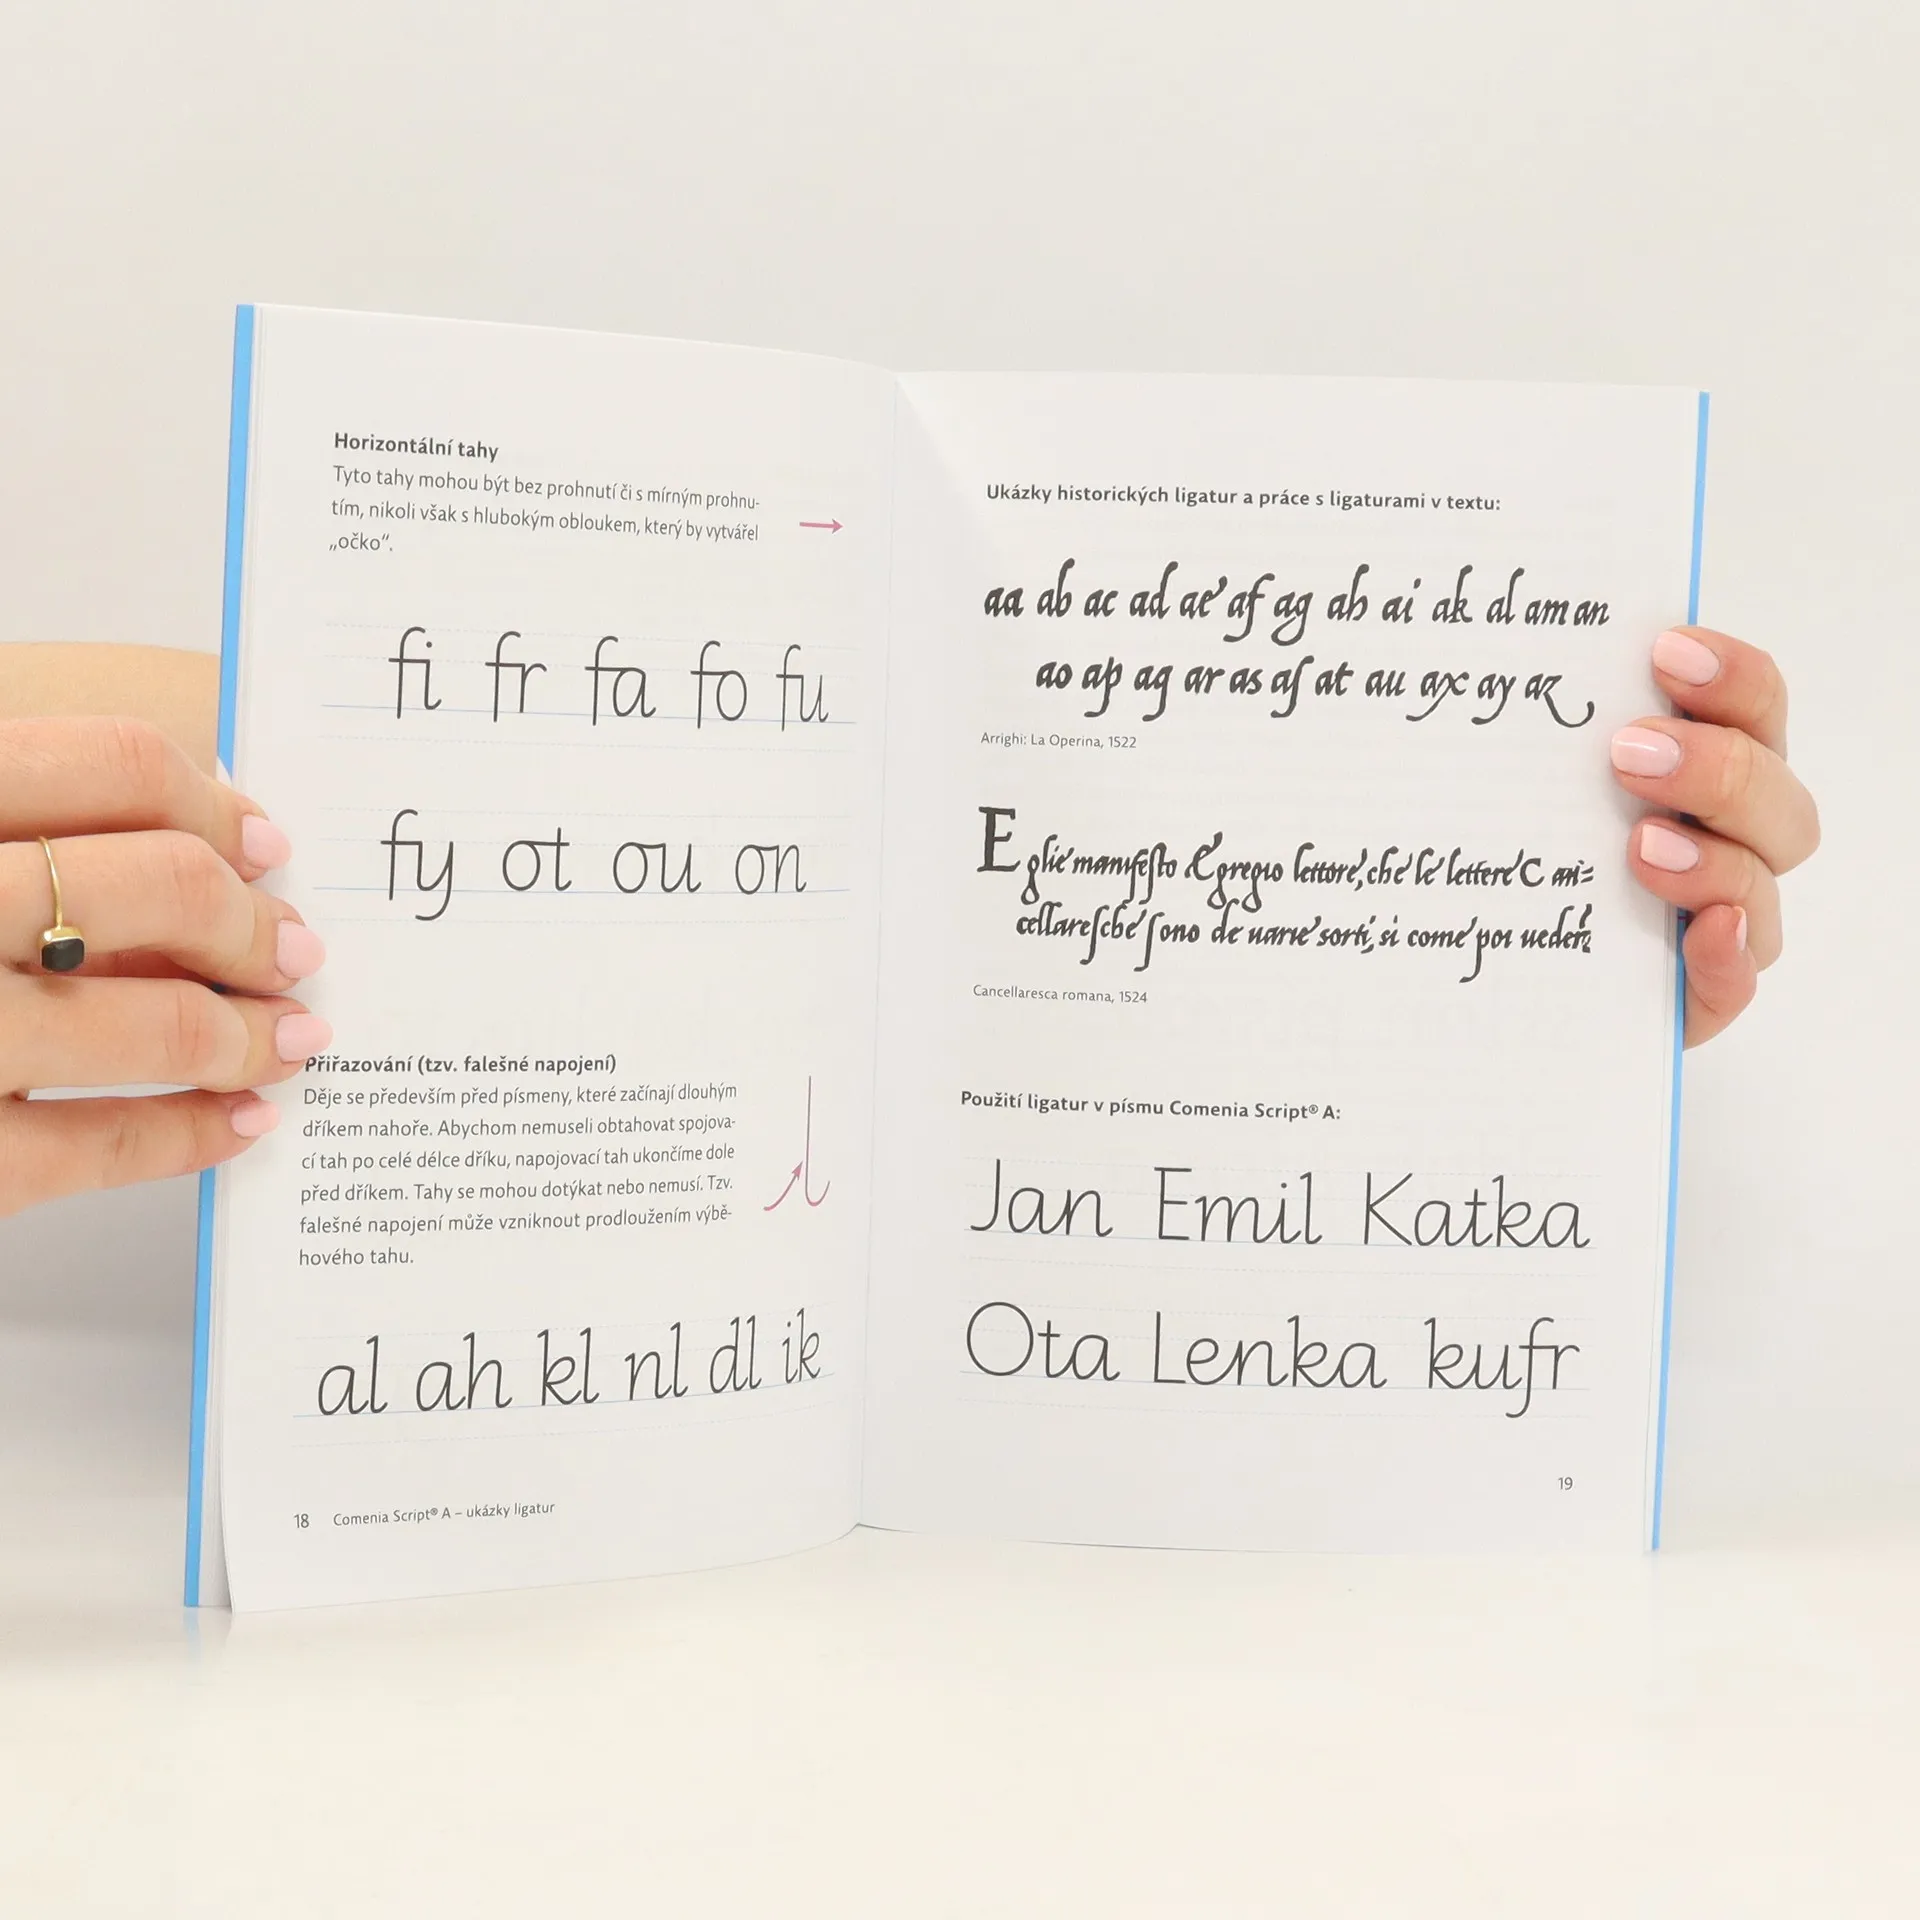 Horizontální tahy
Tyto tahy mohou být bez prohnutí či s mírným prohnu-
tím, nikoli však s hlubokým obloukem, který by vytvářel
„očko“.
fi fr fa fo fu
fy ot ou on
Přiřazování (tzv. falešné napojení)
Děje se především před písmeny, které začínají dlouhým
dříkem nahoře. Abychom nemuseli obtahovat spojova-
cí tah po celé délce dříku, napojovací tah ukončíme dole
před dříkem. Tahy se mohou dotýkat nebo nemusí. Tzv.
falešné napojení může vzniknout prodloužením výbě-
hového tahu.
al ah kl nl dl ik
18 Comenia Script® A – ukázky ligatur
Ukázky historických ligatur a práce s ligaturami v textu:
aa ab ac ad ae af ag ah ai ak al am an
ao ap aq ar as aſ at au ax ay az
Arrighi: La Operina, 1522
E glie manifeſto Egregio lettore, che le lettere C an=
cellareſche ſono de uarie sorti, si come poi ueder
Cancellaresca romana, 1524
Použití ligatur v písmu Comenia Script® A:
Jan Emil Katka
Ota Lenka kufr
19